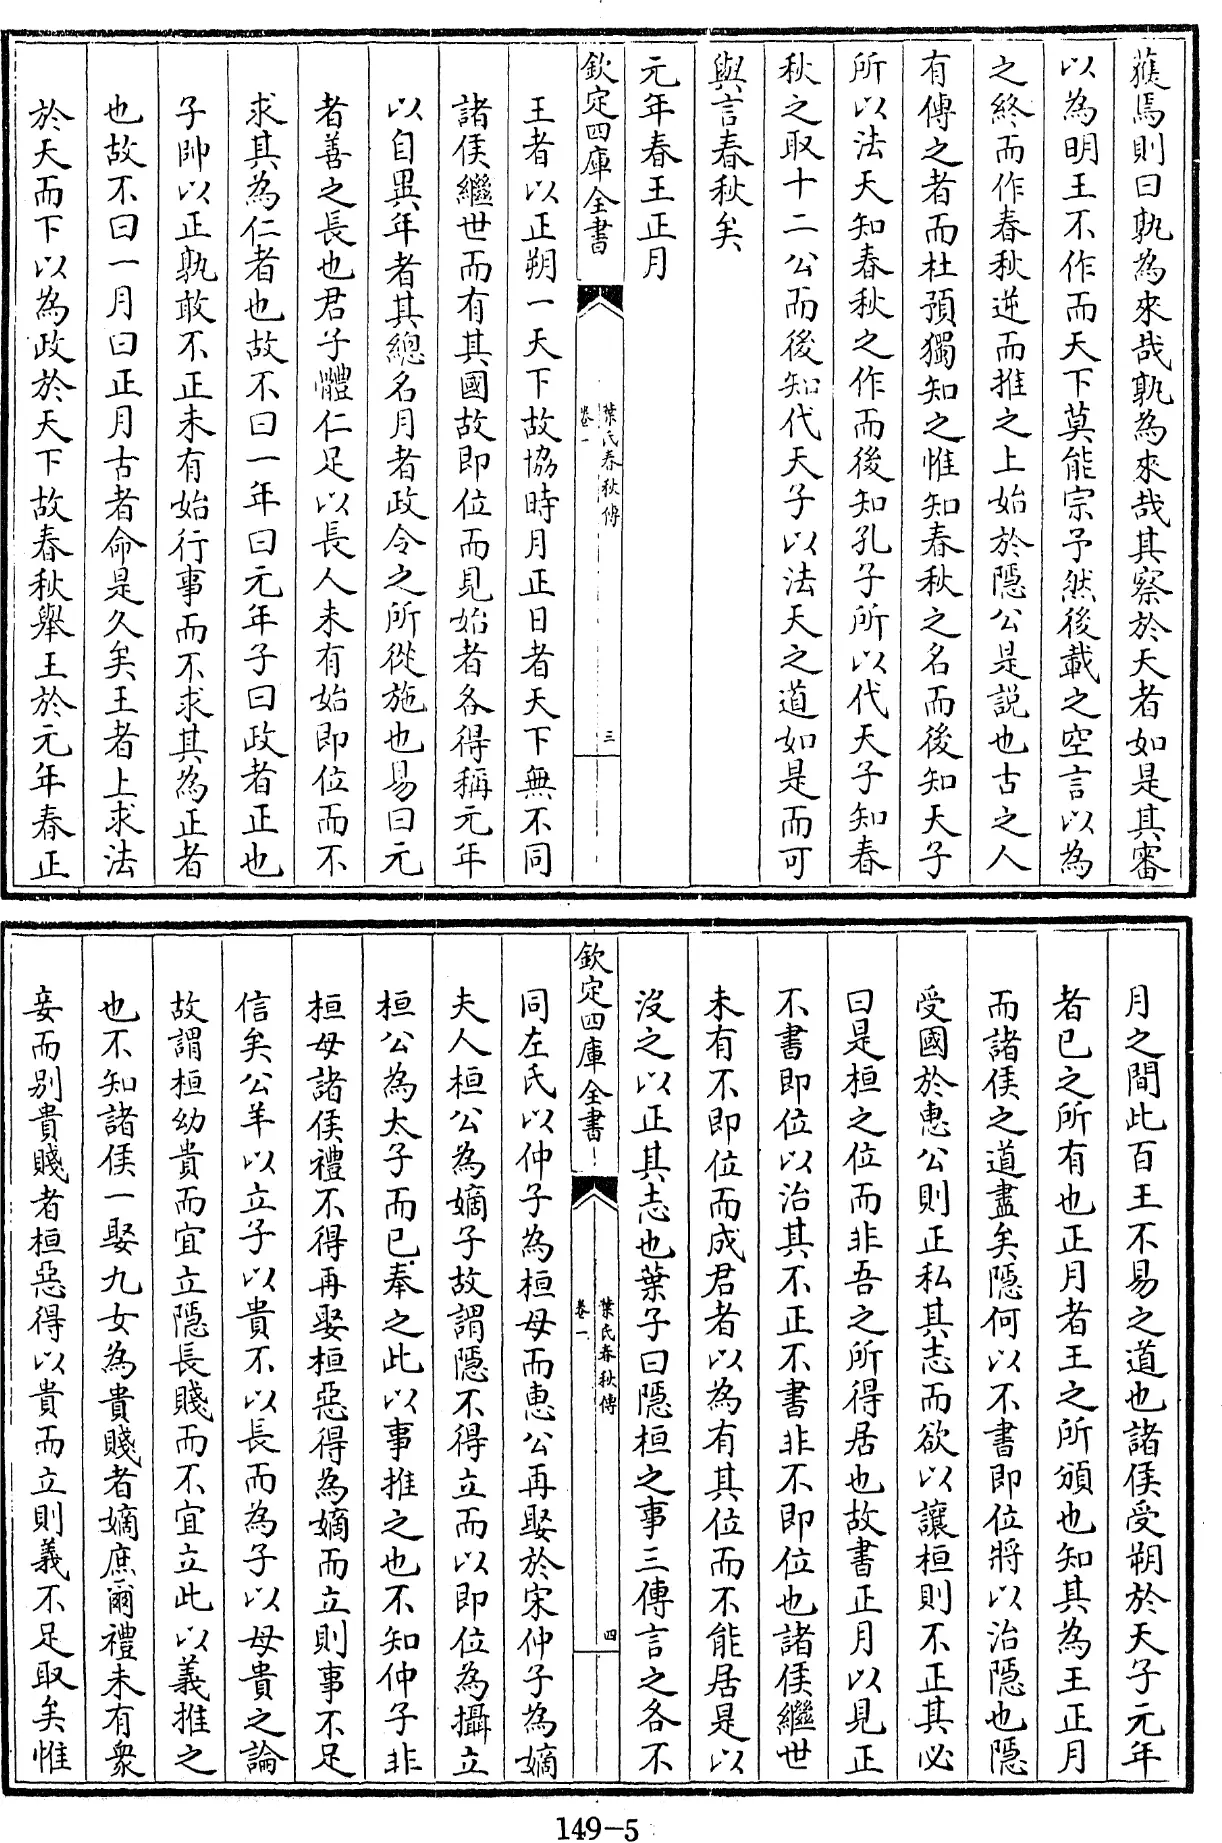 獲焉則曰孰為來哉孰為來哉其察於天者如是其審
以為明王不作而天下莫能宗予然後載之空言以為
之終而作春秋逆而推之上始於隱公是説也古之人
有傳之者而杜預獨知之惟知春秋之名而後知天子
所以法天知春秋之作而後知孔子所以代天子知春
秋之取十二公而後知代天子以法天之道如是而可
與言春秋矣
元年春王正月
欽定四庫全書
葉氏春秋傳
卷一
三
王者以正朔一天下故協時月正日者天下無不同
諸侯繼世而有其國故即位而見始者各得稱元年
以自異年者其總名月者政令之所從施也易曰元
者善之長也君子體仁足以長人未有始即位而不
求其為仁者也故不曰一年曰元年子曰政者正也
子帥以正孰敢不正未有始行事而不求其為正者
也故不曰一月曰正月古者命是久矣王者上求法
於天而下以為政於天下故春秋舉王於元年春正
月之間此百王不易之道也諸侯受朔於天子元年
者已之所有也正月者王之所頒也知其為王正月
而諸侯之道盡矣隱何以不書即位將以治隱也隱
受國於惠公則正私其志而欲以讓桓則不正其必
曰是桓之位而非吾之所得居也故書正月以見正
不書即位以治其不正不書非不即位也諸侯繼世
未有不即位而成君者以為有其位而不能居是以
沒之以正其志也葉子曰隱桓之事三傳言之各不
欽定四庫全書
葉氏春秋傳
卷一
四
同左氏以仲子為桓母而惠公再娶於宋仲子為嫡
夫人桓公為嫡子故謂隱不得立而以即位為攝立
桓公為太子而已奉之此以事推之也不知仲子非
桓母諸侯禮不得再娶桓惡得為嫡而立則事不足
信矣公羊以立子以貴不以長而為子以母貴之論
故謂桓幼貴而宜立隱長賤而不宜立此以義推之
也不知諸侯一娶九女為貴賤者嫡庶爾禮未有衆
妾而别貴賤者桓惡得以貴而立則義不足取矣惟
149-5